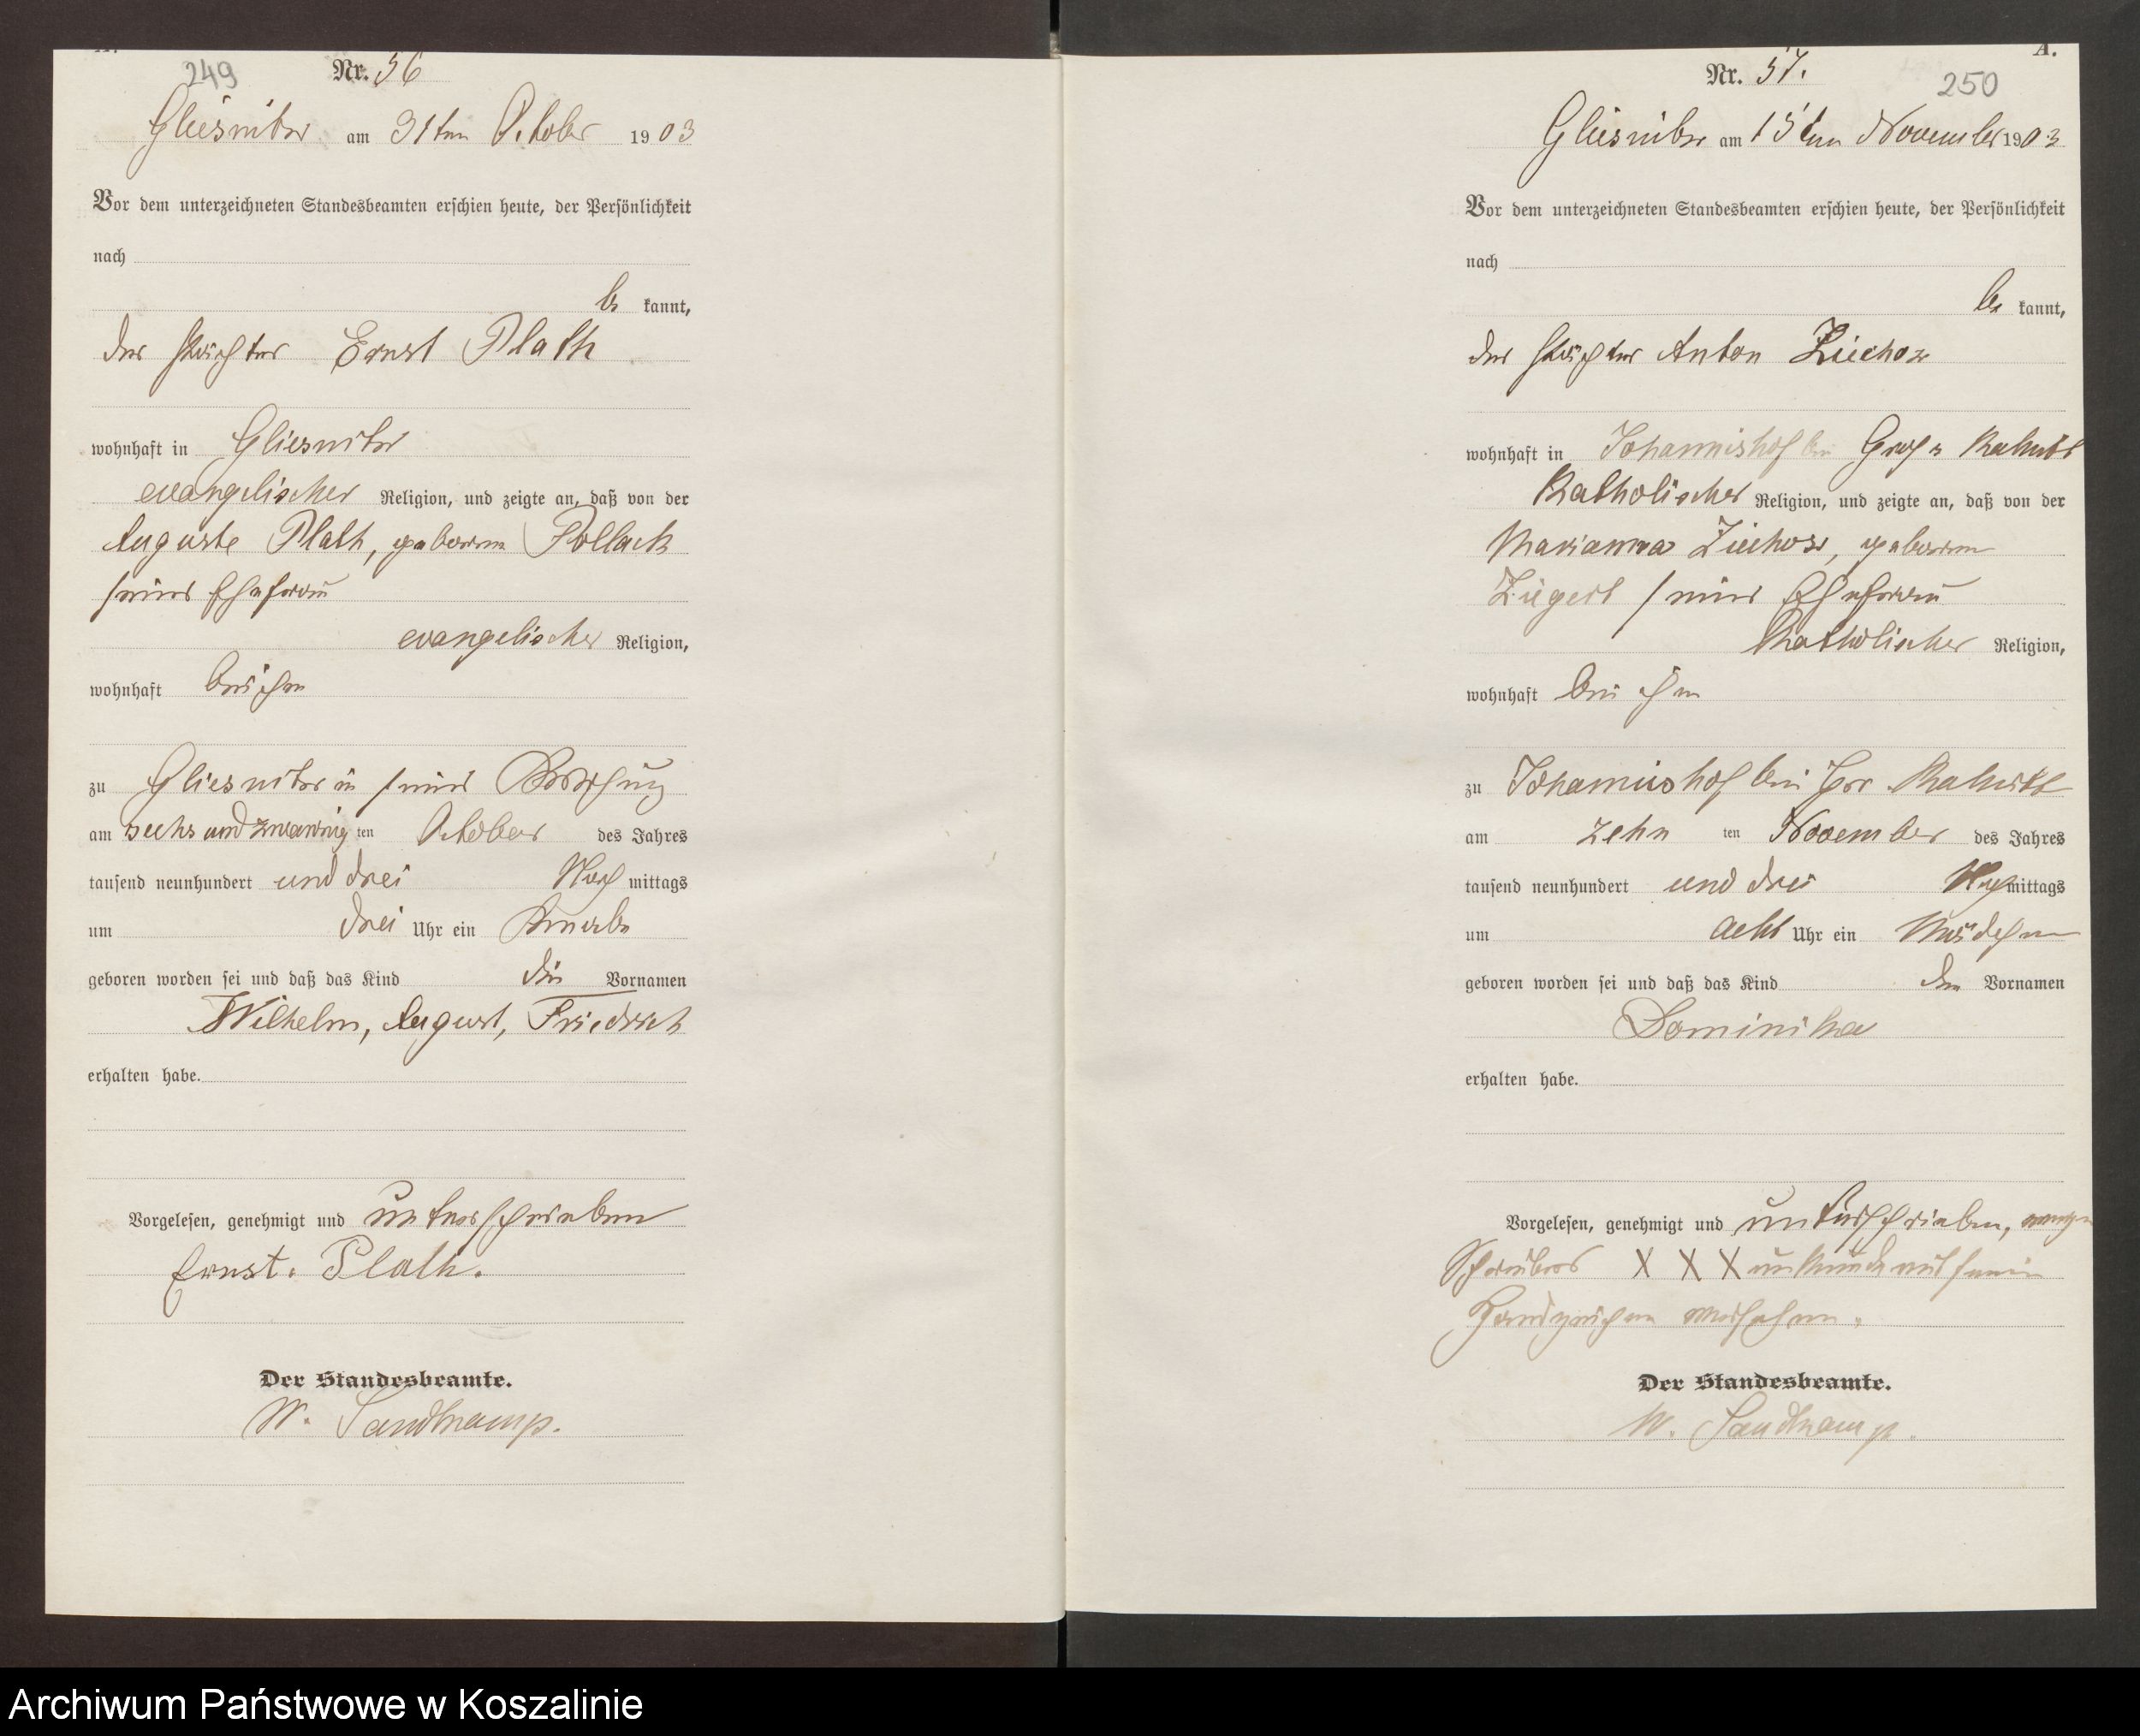 A.
249
Nr. 56
Gliesnitz am 31ten October 1903
Vor dem unterzeichneten Standesbeamten erschien heute, der Persönlichkeit
nach
be kannt,
der Ernst Plath
wohnhaft in Gliesnitz
evangelischer Religion, und zeigte an, daß von der
Auguste Plath, geborene Pollack
seiner Ehefrau
evangelischer Religion,
wohnhaft bei ihm
zu Gliesnitz in seiner Behausung
am sechs und zwanzig ten October des Jahres
tausend neunhundert und drei Nach mittags
um drei Uhr ein Knabe
geboren worden sei und daß das Kind die Vornamen
Wilhelm, August, Friedrich
erhalten habe.
Vorgelesen, genehmigt und unterschrieben
Ernst. Plath.
Der Standesbeamte.
W. Sandkamp.
A.
Nr. 57.
250
Gliesnitz am 15ten November 1903
Vor dem unterzeichneten Standesbeamten erschien heute, der Persönlichkeit
nach
be kannt,
der Anton
wohnhaft in Johannishof bei Groß
Katholischer Religion, und zeigte an, daß von der
Marianna geborene
seiner Ehefrau
Katholischer Religion,
wohnhaft bei ihm
zu Johannishof bei Gr
am zehn ten November des Jahres
tausend neunhundert und drei mittags
um acht Uhr ein Mädchen
geboren worden sei und daß das Kind den Vornamen
Dominika
erhalten habe.
Vorgelesen, genehmigt und unterschrieben, wegen
Schreibens X X X unkunde mit seinem
Handzeichen versehen.
Der Standesbeamte.
W. Sandkamp.
Archiwum Państwowe w Koszalinie